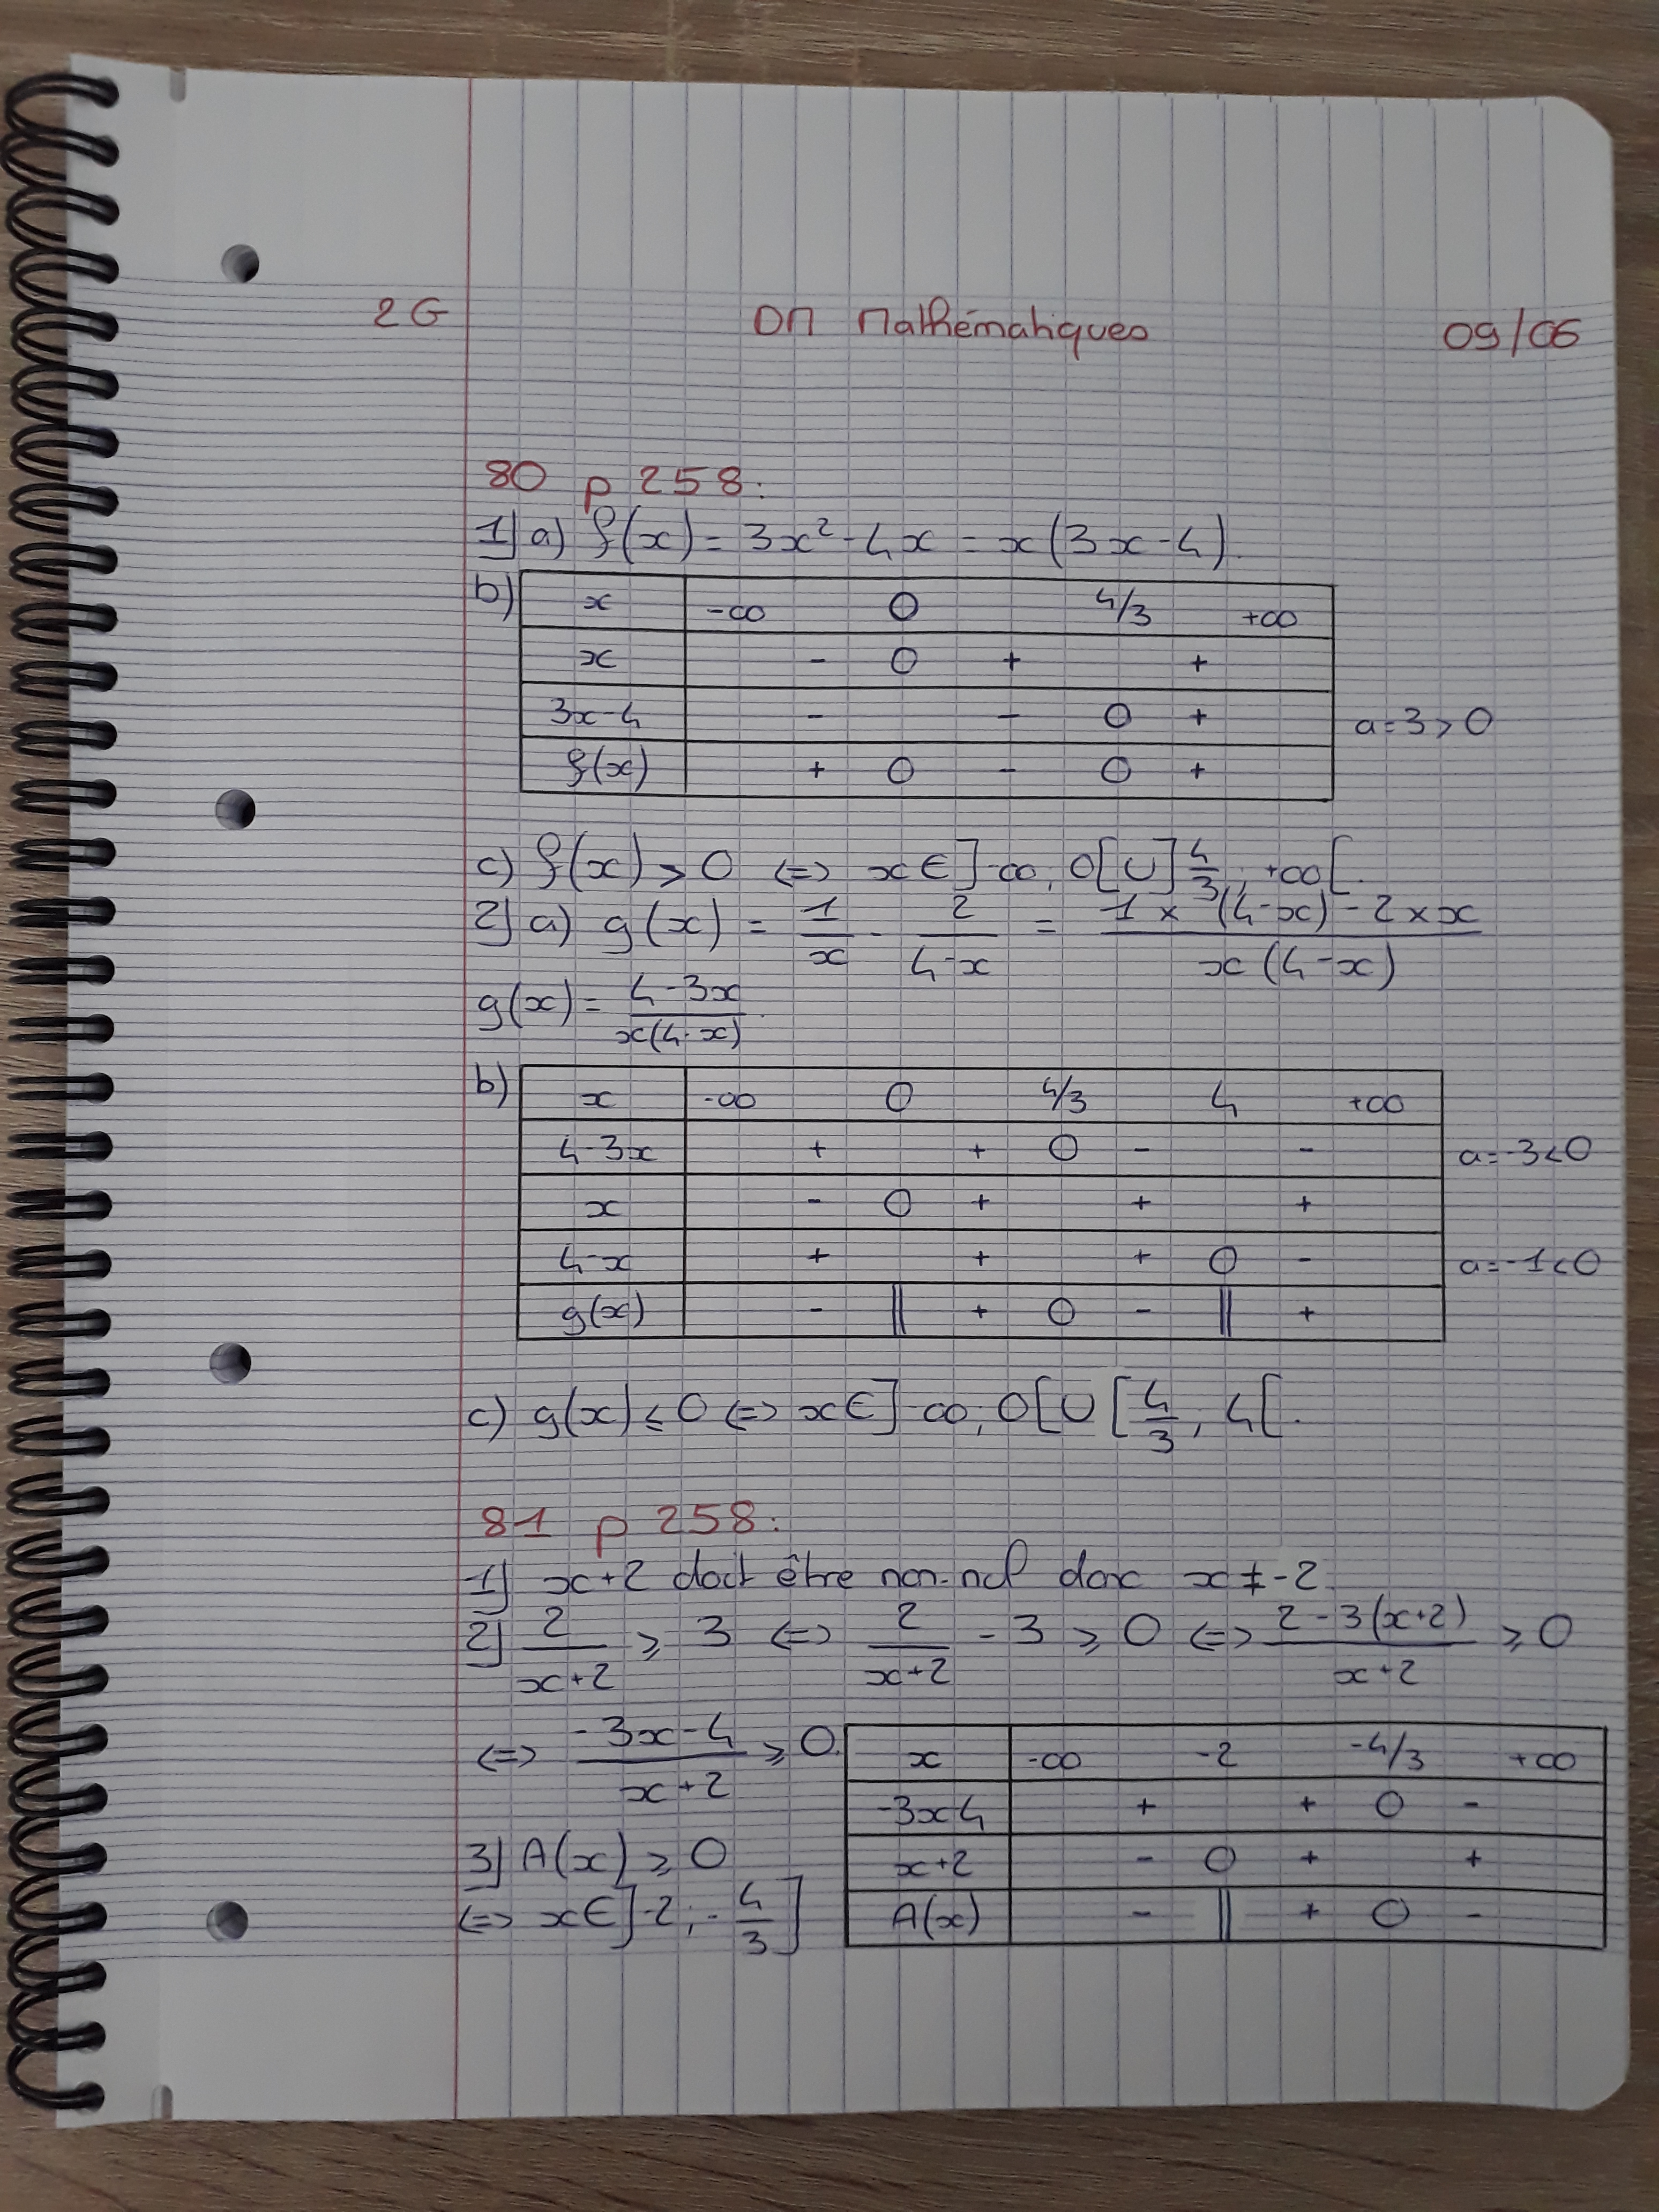 2G DM Mathématiques 09/06
80 p 258:
1) a) f(x) = 3x² - 4x = x(3x-4).
b) x -∞ 0 4/3 +∞
x - 0 + +
3x-4 - - 0 + a=3>0
f(x) + 0 - 0 +
c) f(x) > 0 <=> x∈]-∞; 0[∪]4/3; +∞[.
2) a) g(x) = 1/x - 2/(4-x) = (1×(4-x) - 2×x)/(x(4-x))
g(x) = (4-3x)/(x(4-x)).
b) x -∞ 0 4/3 4 +∞
4-3x + + 0 - - a=-3<0
x - 0 + + +
4-x + + + 0 - a=-1<0
g(x) - || + 0 - || +
c) g(x) ⩽ 0 <=> x∈]-∞; 0[∪[4/3; 4[.
81 p 258:
1) x+2 doit être non-nul donc x≠-2.
2) 2/(x+2) ⩾ 3 <=> 2/(x+2) - 3 ⩾ 0 <=> (2-3(x+2))/(x+2) ⩾ 0
<=> (-3x-4)/(x+2) ⩾ 0.
x -∞ -2 -4/3 +∞
-3x-4 + + 0 -
x+2 - 0 + +
A(x) - || + 0 -
3) A(x) ⩾ 0
<=> x∈]-2; -4/3]